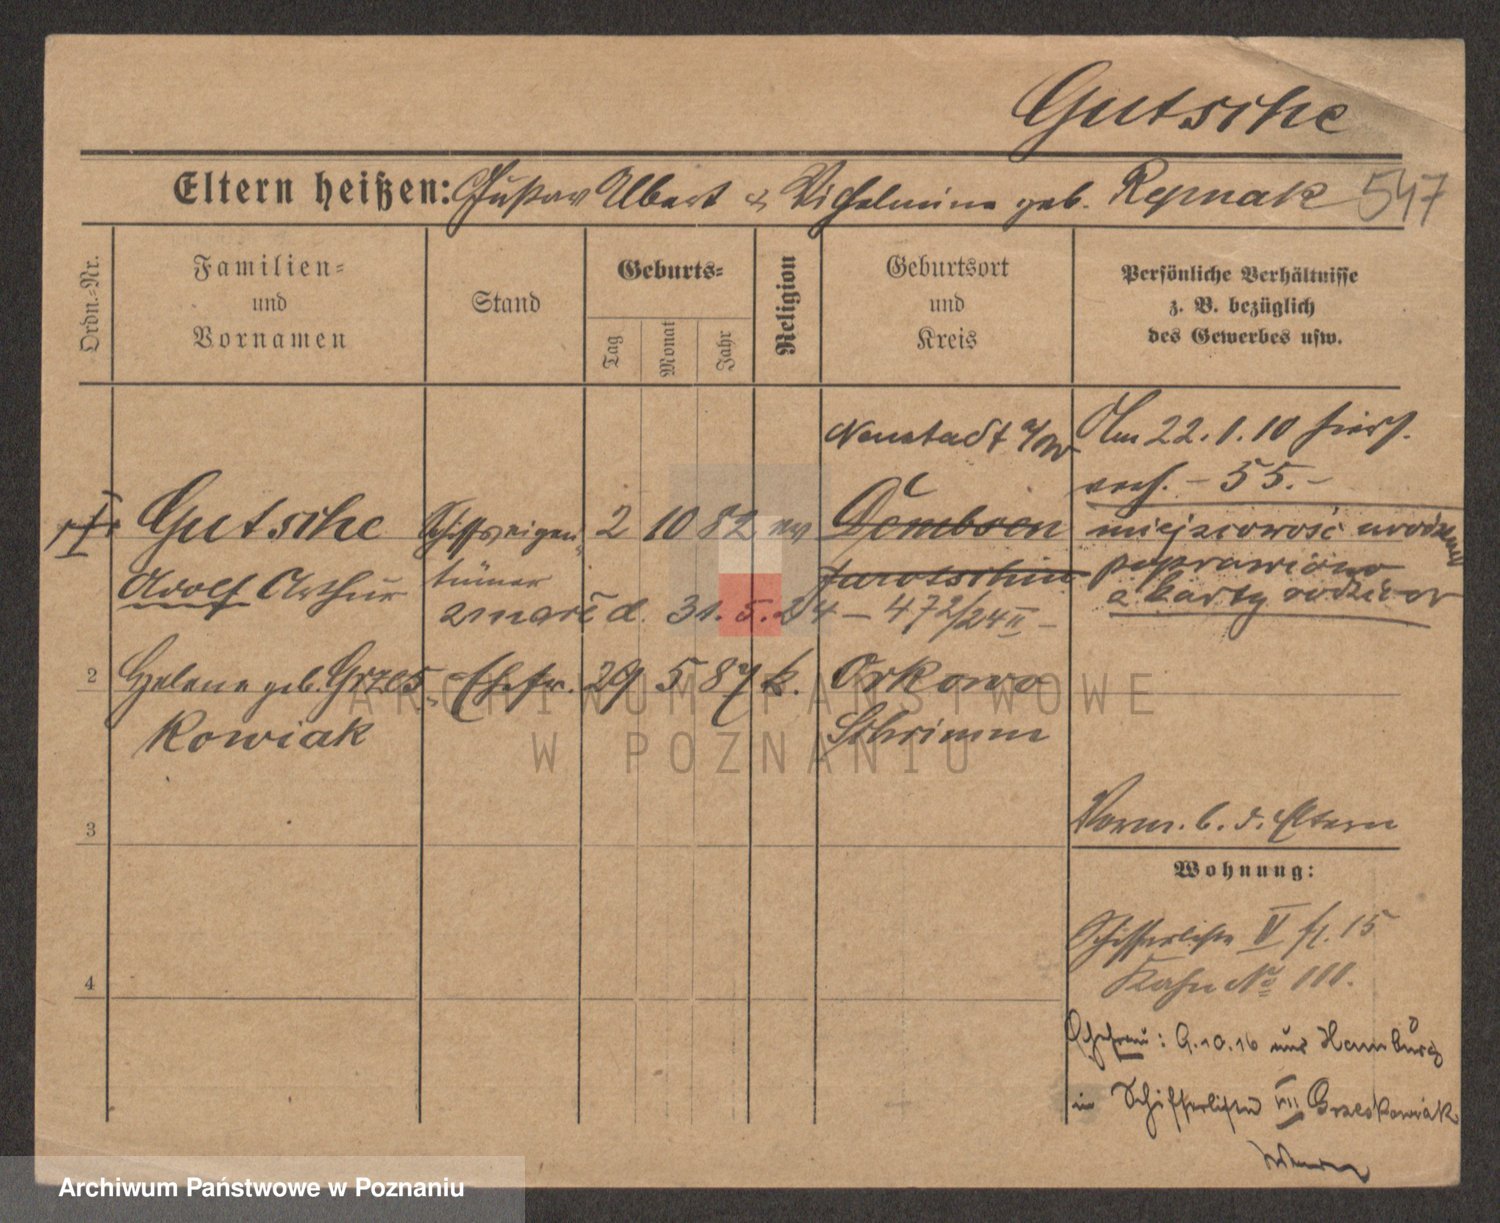 Gutsche
Eltern heißen: Gustav Albert & Wilhelmine geb. Repnak 547
Ordn.-Nr.
Familien-
und
Vornamen
Stand
Geburts-
Tag
Monat
Jahr
Religion
Geburtsort
und
Kreis
Persönliche Verhältnisse
z. B. bezüglich
des Gewerbes usw.
Neustadt a/W
Am 22.1.10 hier
verh. - 55.-
I Gutsche Schiffseigen- 2 10 82 ev Dembsen
tümer
Adolf Arthur
Jarotschin
miejscowość urodzenia
poprawiono
z karty rodziców
zmarł d. 31.5.24 - 472/24 II -
2 Helene geb. Grzes- Ehefr. 29 5 87 k. Orkowo
kowiak
Schrimm
3
Vorm. b. d. Eltern
Wohnung:
Schifferliste V fl. 15
Kahn No 111.
4
Ehefrau: 9.10.16 aus Hamburg
in Schifferliste VII Grzeskowiak
ARCHIWUM PAŃSTWOWE
W POZNANIU
Archiwum Państwowe w Poznaniu